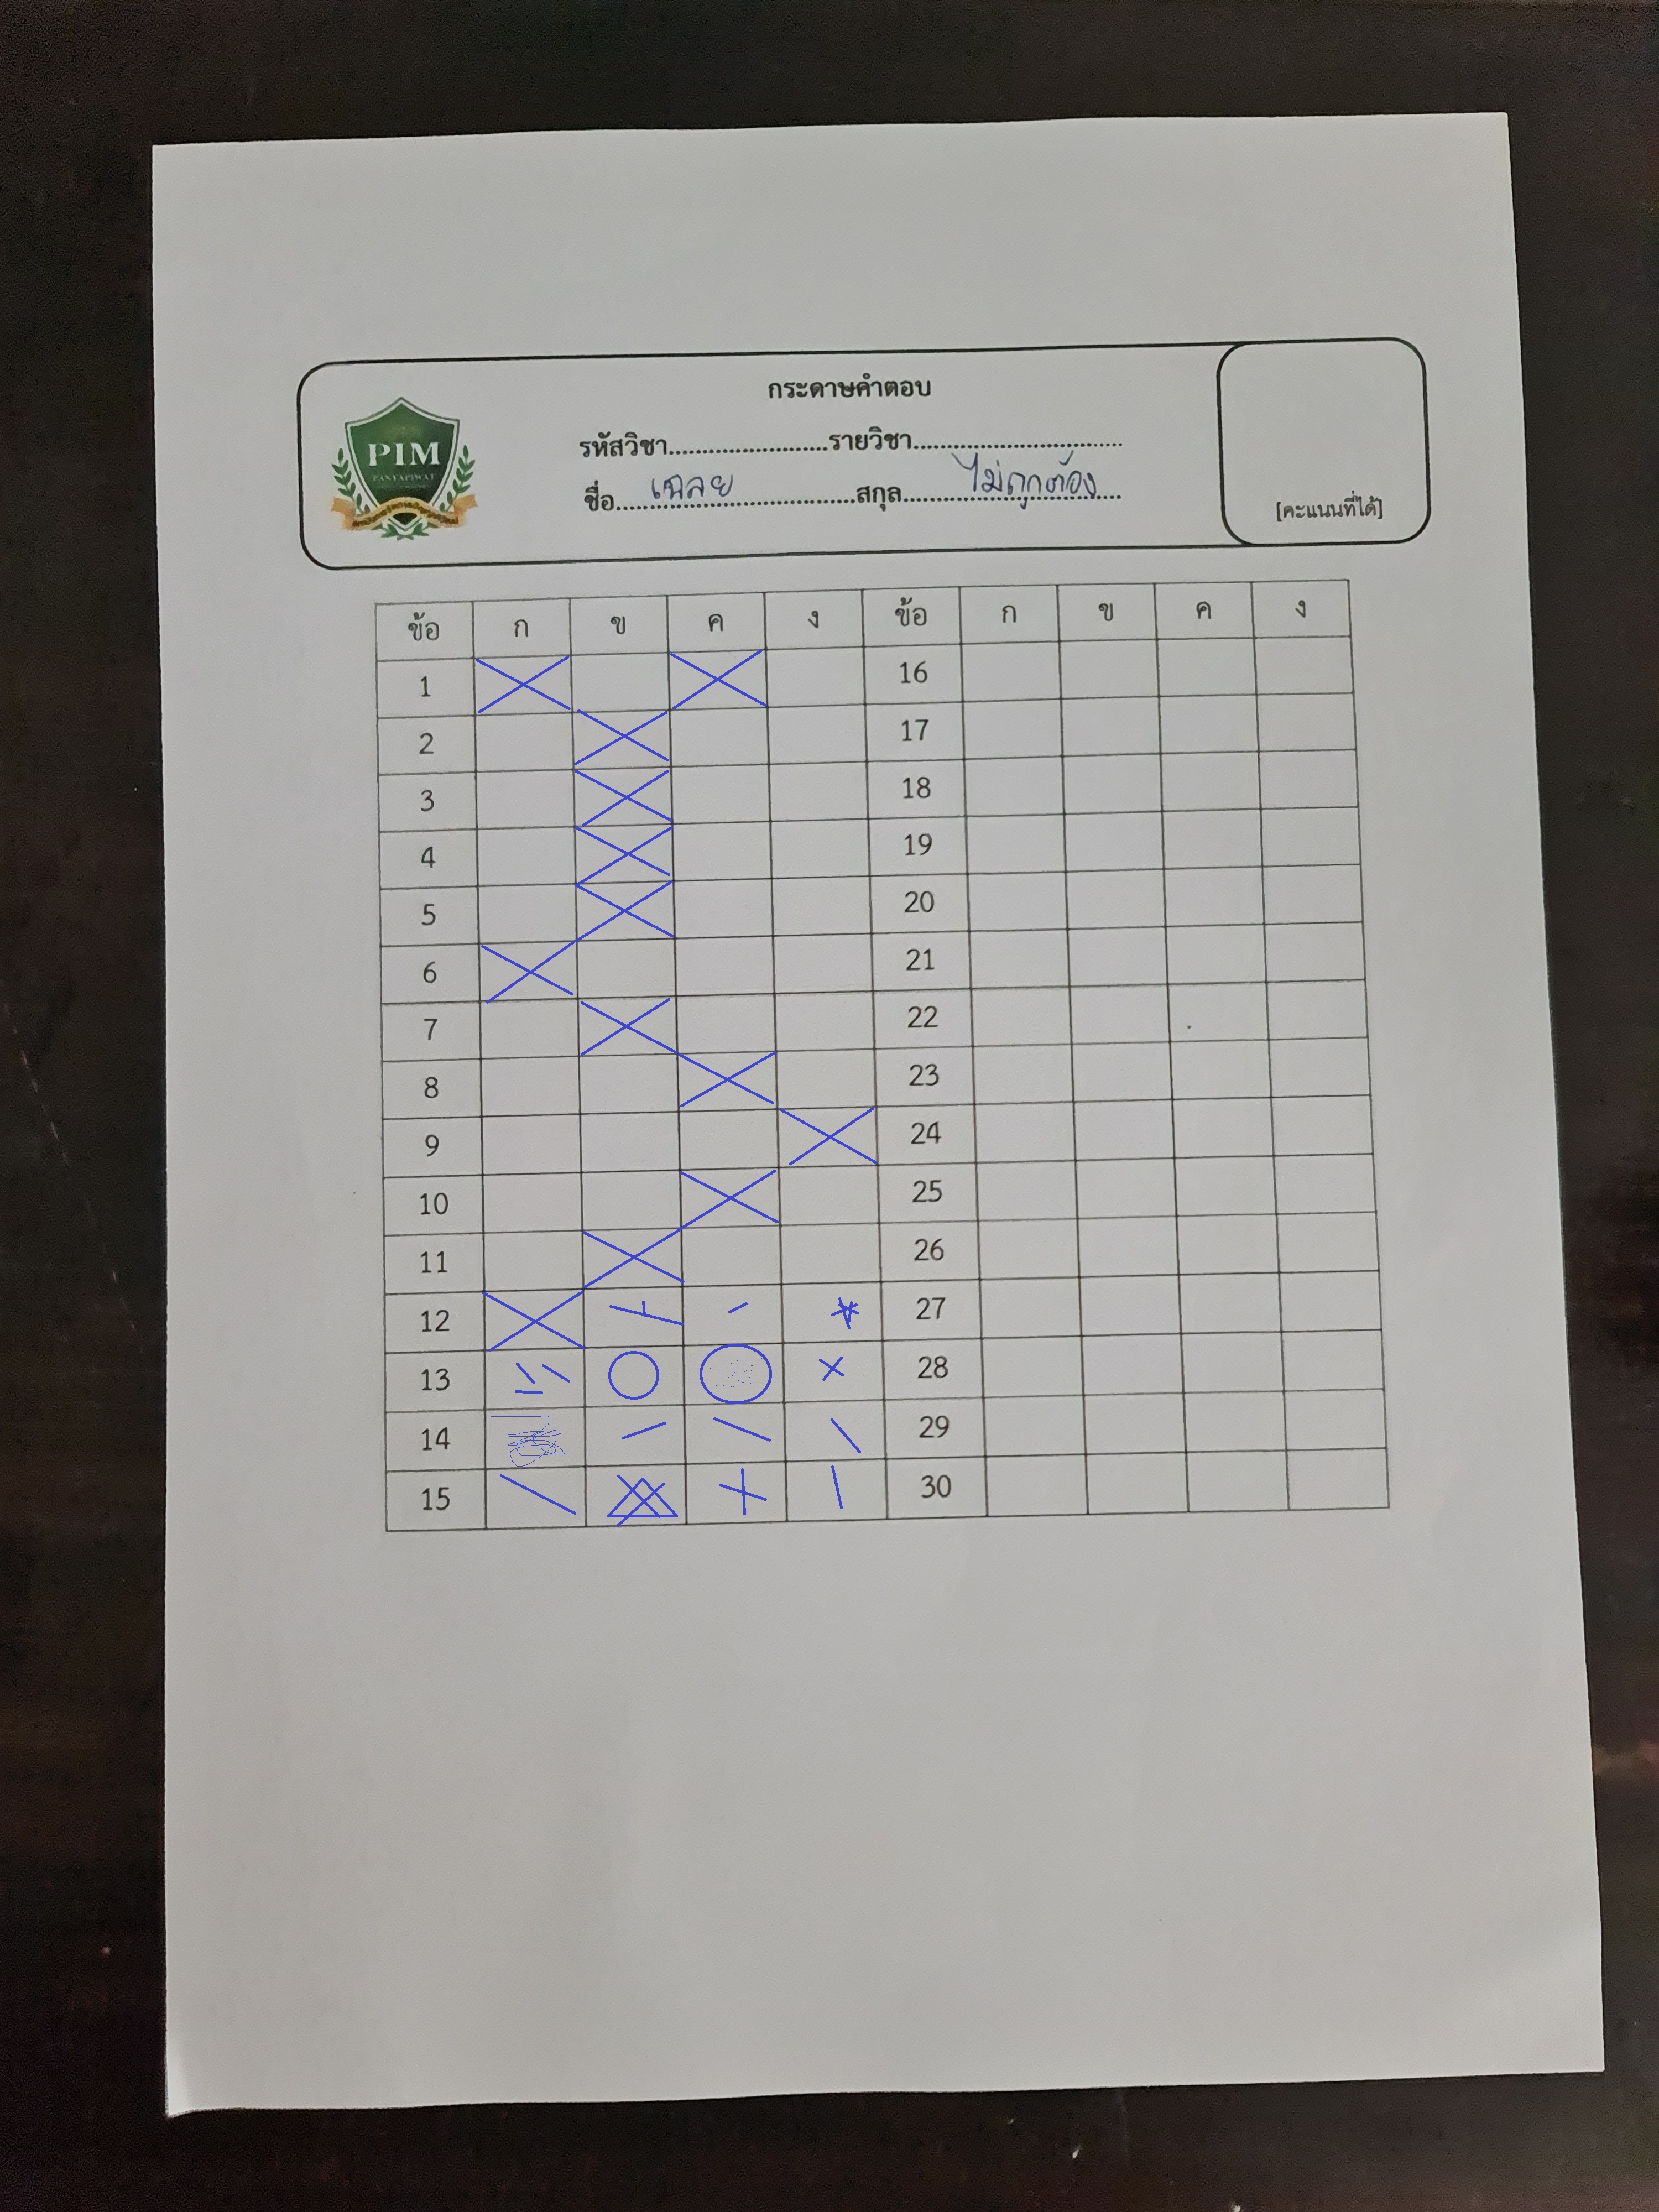 กระดาษคำตอบ
PIM
PANYAPIWAT
รหัสวิชา........................รายวิชา................................
ชื่อ....เฉลย....สกุล....ไม่ถูกต้อง....
[คะแนนที่ได้]
ข้อ ก ข ค ง ข้อ ก ข ค ง
1 X X 16
2 X 17
3 X 18
4 X 19
5 X 20
6 X 21
7 X 22
8 X 23
9 X 24
10 X 25
11 X 26
12 X 27
13 X 28
14 29
15 30